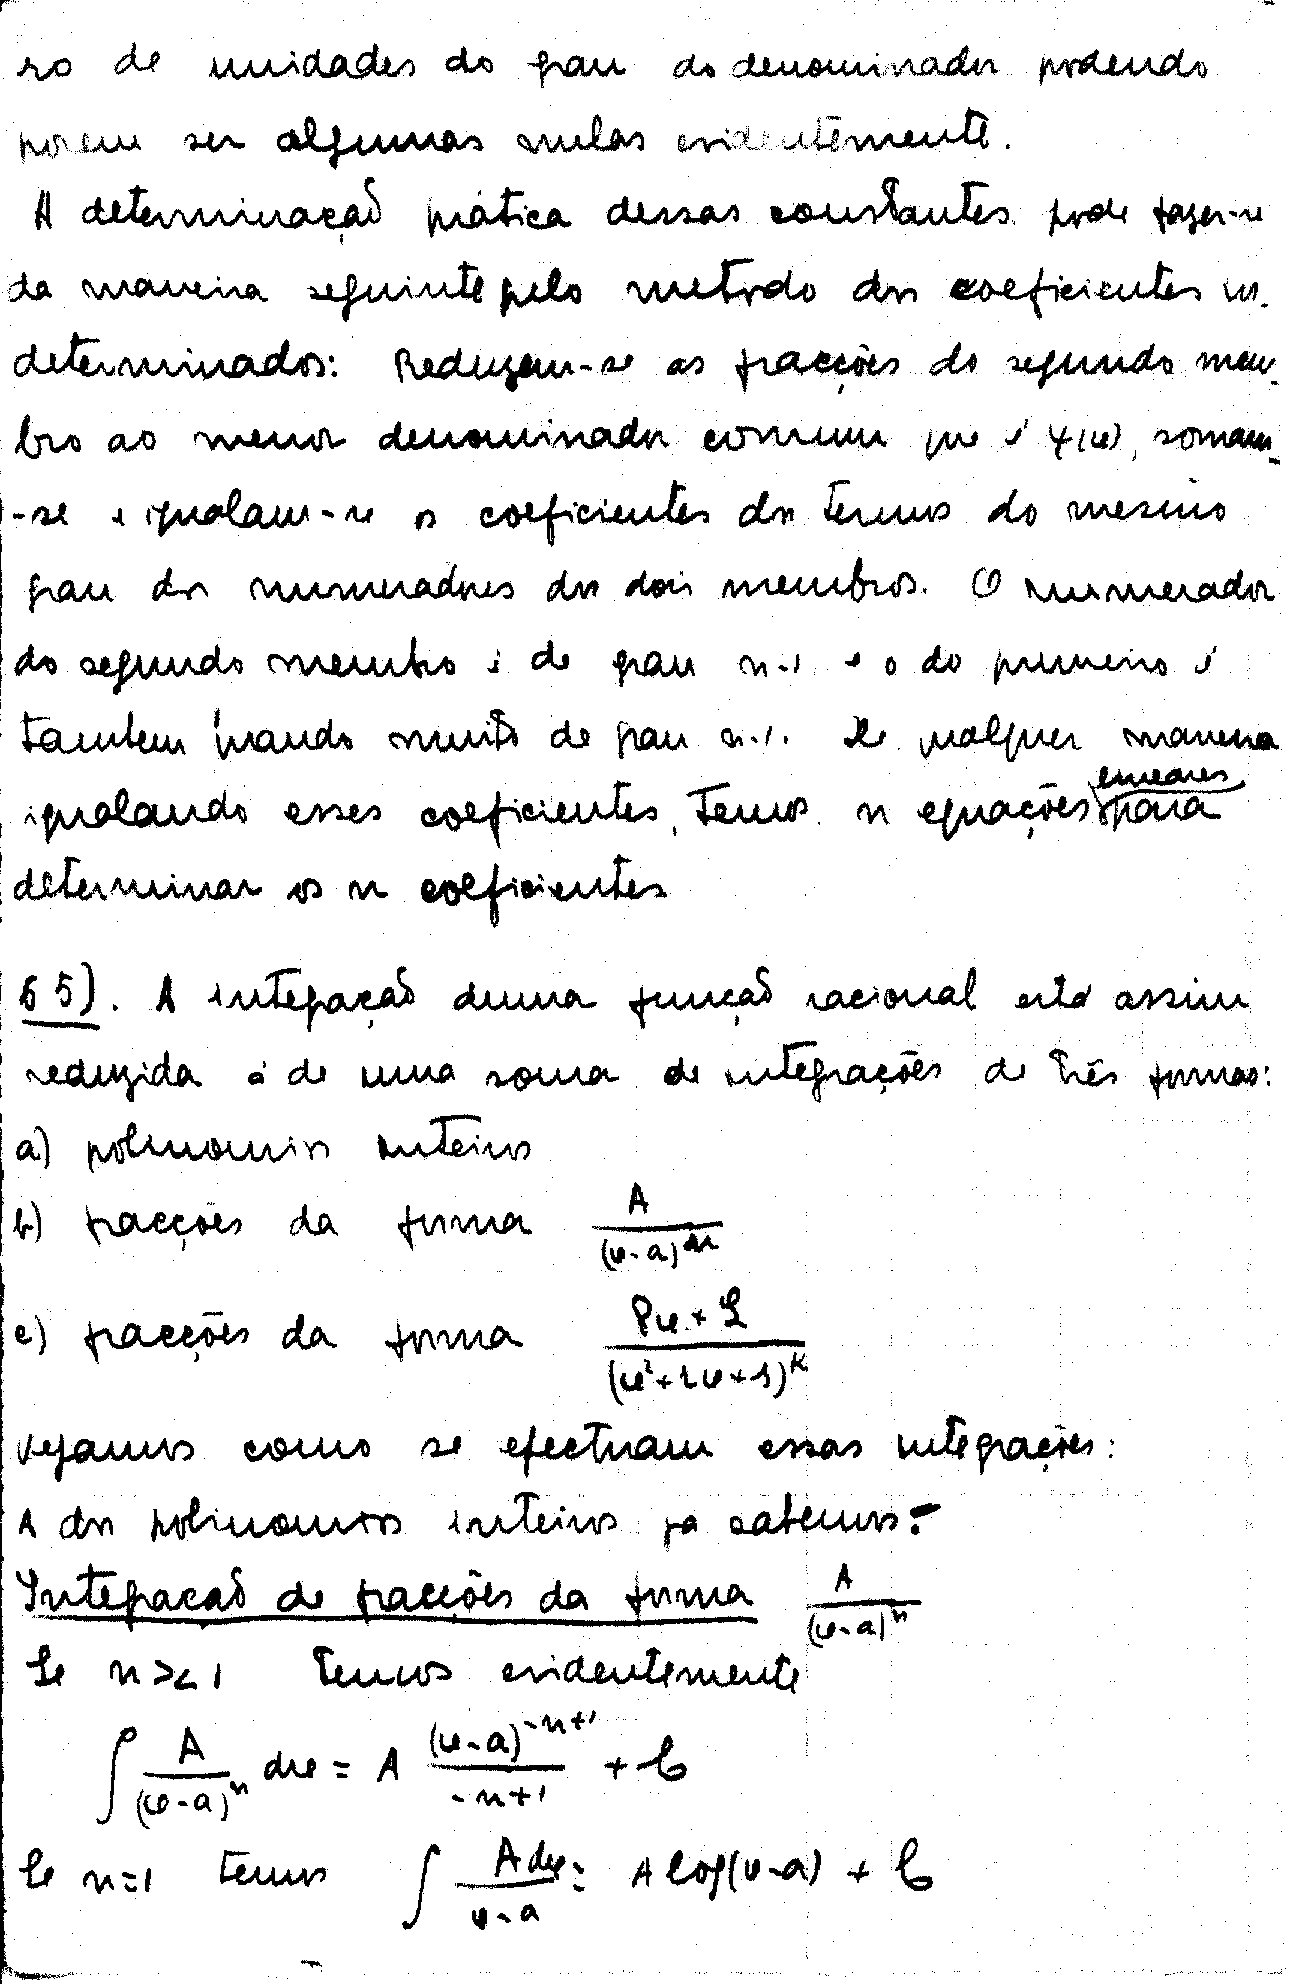 ro de unidades do grau do denominador podendo
porem ser algumas nulas evidentemente.
A determinação prática dessas constantes pode fazer-se
da maneira seguinte pelo metodo dos coeficientes in-
determinados: Reduzem-se as fracções do segundo mem-
bro ao menor denominador comum que é ψ(x), somam-
-se e igualam-se os coeficientes dos termos do mesmo
grau dos numeradores dos dois membros. O numerador
do segundo membro é de grau n-1 e o do primeiro é
tambem quando muito de grau n-1. De qualquer maneira
igualando esses coeficientes, temos n equações lineares para
determinar os n coeficientes
65). A integração duma função racional está assim
reduzida á de uma soma de integrações de três formas:
a) polinomios inteiros
b) fracções da forma A/(x-a)^m
c) fracções da forma (Px+Q)/(x²+rx+s)^k
Vejamos como se efectuam essas integrações:
A dos polinomios inteiros ja sabemos.
Integração de fracções da forma A/(x-a)^n
Se n><1 temos evidentemente
∫ A/(x-a)^n dx = A (x-a)^{-n+1}/(-n+1) + C
Se n=1 temos ∫ A dx/(x-a) = A log(x-a) + C